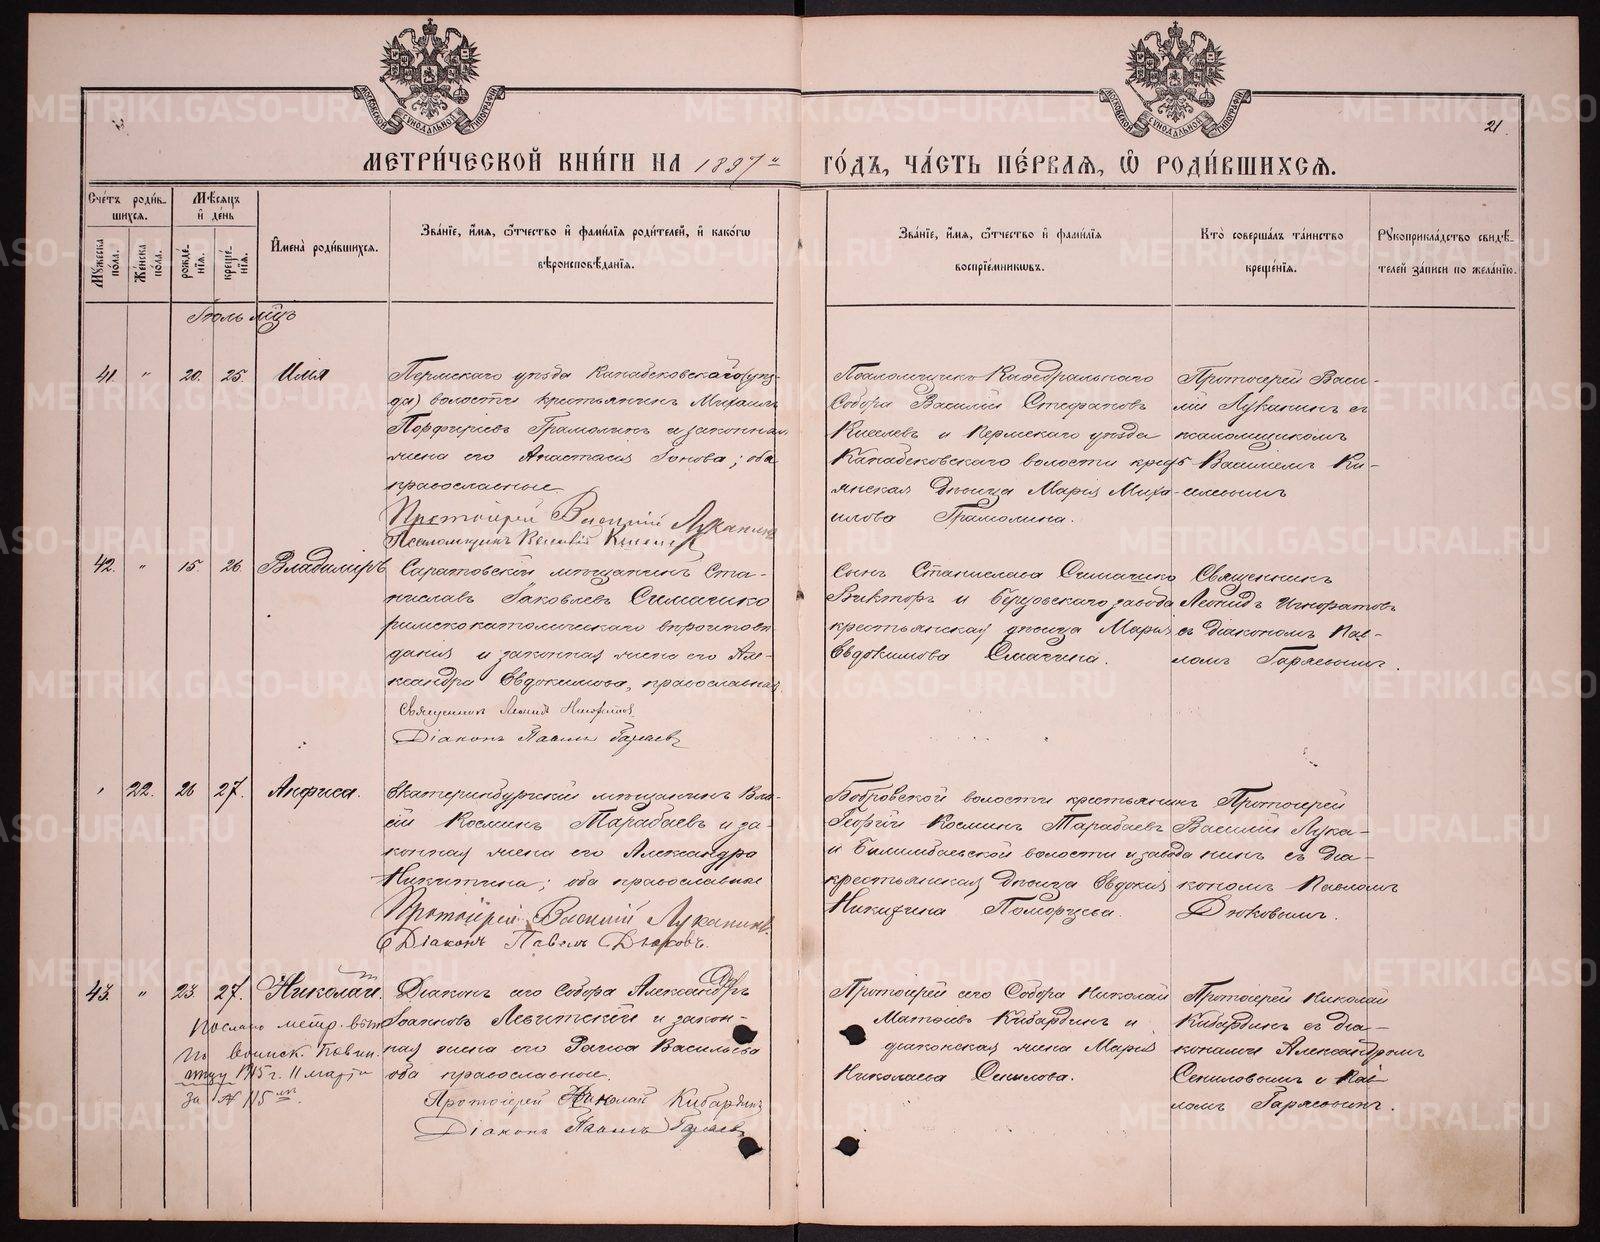 МЕТРИ́ЧЕСКОЙ КНИ́ГИ НА 1897 го́дъ, ча́сть пе́рвая, ѿ роди́вшихся.
21.
Сче́тъ роди́вшихся.
Му́жеска по́ла.
Же́нска по́ла.
Мѣ́сяцъ и҆ де́нь
рожде́нїя.
креще́нїя.
И҆мена̀ роди́вшихся.
Зва́нїе, и҆́мя, ѻ҆́тчество и҆ фами́лїя роди́телей, и҆ како́гѡ
вѣроисповѣ́данїя.
Зва́нїе, и҆́мя, ѻ҆́тчество и҆ фами́лїя
воспрїе́мниковъ.
Кто̀ соверша́лъ та́инство
креще́нїя.
Рꙋкоприкла́дство свидѣ́-
телей за́писи по жела́нїю.
Іюль мцъ
41. " 20. 25. Илія
Пермскаго уѣзда Канабековскаго (уѣз-
да) волости крестьянинъ Михаилъ
Порфирiевъ Грамолинъ и законная
жена его Анастасія Іонова; оба
православные
Протоіерей Василій Луканинъ
Псаломщикъ Василій Киселевъ
Псаломщикъ Каѳедральнаго
Собора Василій Стефановъ
Киселевъ и Пермскаго уѣзда
Канабековскаго волости кресть
янская дѣвица Марія Миха-
илова Грамолина.
Протоіерей Васи-
лій Луканинъ съ
псаломщикомъ
Василіемъ Ки-
селевымъ
42. " 15. 26. Владиміръ
Саратовскій мѣщанинъ Ста-
ниславъ Яковлевъ Симашко
римскокатолическаго вѣроиспове-
данія и законная жена его Але-
ксандра Евдокимова, православная
Священникъ Леонидъ Игноратовъ
Діаконъ Павелъ Гаряевъ
Сынъ Станислава Симашко
Викторъ и Березовскаго завода
крестьянская дѣвица Марія
Евдокимова Смагина.
Священникъ
Леонидъ Игноратовъ
съ діакономъ Пав-
ломъ Гаряевымъ.
" 22. 26 27. Анфиса.
Екатеринбургскій мѣщанинъ Вла-
сій Косминъ Тарабаевъ и за-
конная жена его Александра
Никитина; оба православные
Протоіерей Василій Луканинъ.
Діаконъ Павелъ Дюковъ.
Бобровской волости крестьянинъ
Георгій Косминъ Тарабаевъ
и Билимбаевской волости и завода
крестьянская дѣвица Евдокія
Никитина Поморцева.
Протоіерей
Василій Лука-
нинъ съ діа-
кономъ Павломъ
Дюковымъ.
43. " 23. 27. Николай.
Послано метр. вып
въ Воинск. Повин.
1915 г. 11 марта
за № 115
Діаконъ сего Собора Александръ
Іоанновъ Левитскій и закон-
ная жена его Раиса Васильева
оба православные.
Протоіерей Николай Кибардинъ
Діаконъ Павелъ Гаряевъ
Протоіерей сего Собора Николай
Матѳіевъ Кибардинъ и
діаконская жена Марія
Николаева Сенилова.
Протоіерей Николай
Кибардинъ съ діа-
конами Александромъ
Сениловымъ и Пав
ломъ Гаряевымъ.